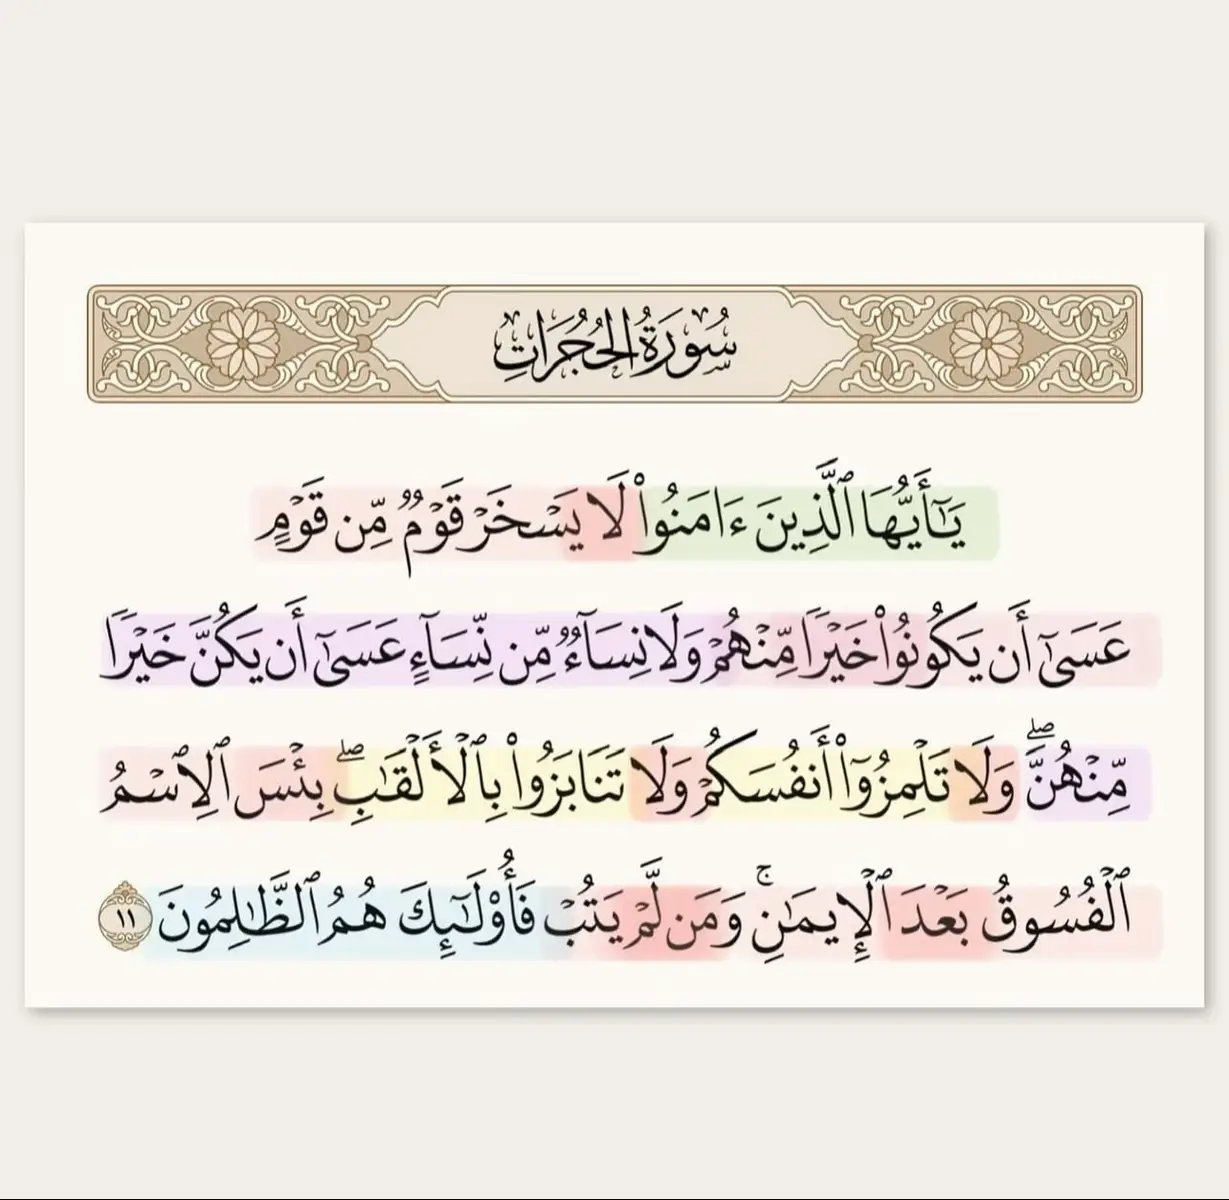 سُورَةُ الحُجُرَاتِ
يَـٰٓأَيُّهَا ٱلَّذِينَ ءَامَنُوا۟ لَا يَسْخَرْ قَوْمٌ مِّن قَوْمٍ
عَسَىٰٓ أَن يَكُونُوا۟ خَيْرًا مِّنْهُمْ وَلَا نِسَآءٌ مِّن نِّسَآءٍ عَسَىٰٓ أَن يَكُنَّ خَيْرًا
مِّنْهُنَّ ۖ وَلَا تَلْمِزُوٓا۟ أَنفُسَكُمْ وَلَا تَنَابَزُوا۟ بِٱلْأَلْقَـٰبِ ۖ بِئْسَ ٱلِٱسْمُ
ٱلْفُسُوقُ بَعْدَ ٱلْإِيمَـٰنِ ۚ وَمَن لَّمْ يَتُبْ فَأُو۟لَـٰٓئِكَ هُمُ ٱلظَّـٰلِمُونَ ١١